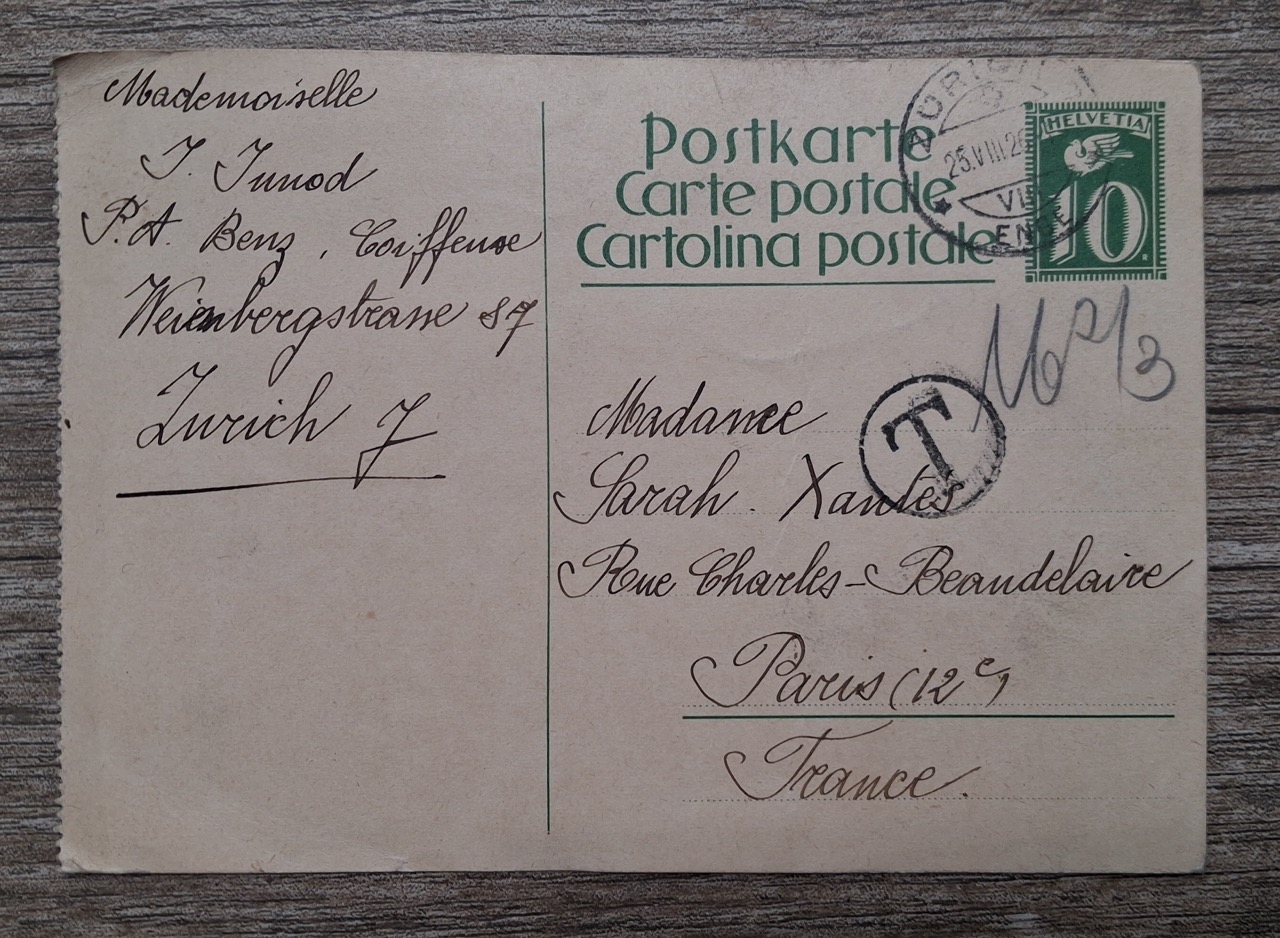 Mademoiselle
J. Junod
P. A. Benz, Coiffeuse
Weinbergstrasse 87
Zurich 7
Postkarte
Carte postale
Cartolina postale
ZÜRICH
25.VIII.26
VII
ENGE
HELVETIA
10
16 2/3
T
Madame
Sarah Xantès
Rue Charles-Beaudelaire
Paris (12e)
France.